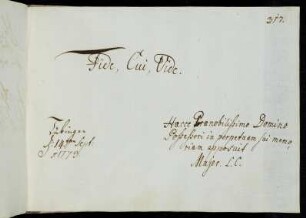 317.
Fide, Cui, Vide.
Tübingen
d. 14ten Sept.
1773
Haece Praenobilissimo Domino
Possessori in perpetuam sui memo
riam apposuit
Majer. L.C.